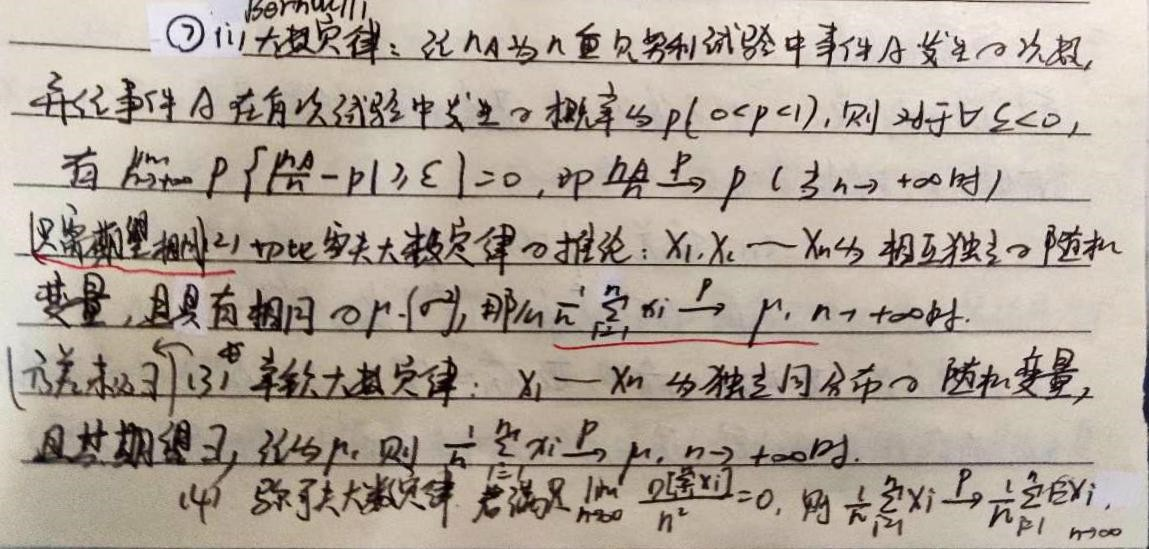 Bernoulli
⑦ (1) 大数定律：记 nA为 n 重贝努利试验中事件A发生の次数,
并记事件A在每次试验中发生の概率为p(0<p<1),则对于∀ε<0,
有 lim n→+∞ P{|nA/n - p|≥ε}=0,即 nA/n →P p (当n→+∞时)
(只需期望相同) (2) 切比雪夫大数定律の推论：X₁,X₂ — Xn为相互独立の随机
变量,且具有相同のμ.(σ²),那么 1/n Σ(i=1→n) xi →P μ, n→+∞时.
(方差未必∃) (3)* 辛钦大数定律：X₁ — Xn 为独立同分布の随机变量,
且其期望∃,记为μ,则 1/n Σ(i=1→n) xi →P μ, n→+∞时.
(4) 马尔可夫大数定律 若满足 lim n→∞ D[Σxi]/n² =0, 则 1/n Σ(i=1→n) Xi →P 1/n Σ(i=1→n) EXi, n→∞